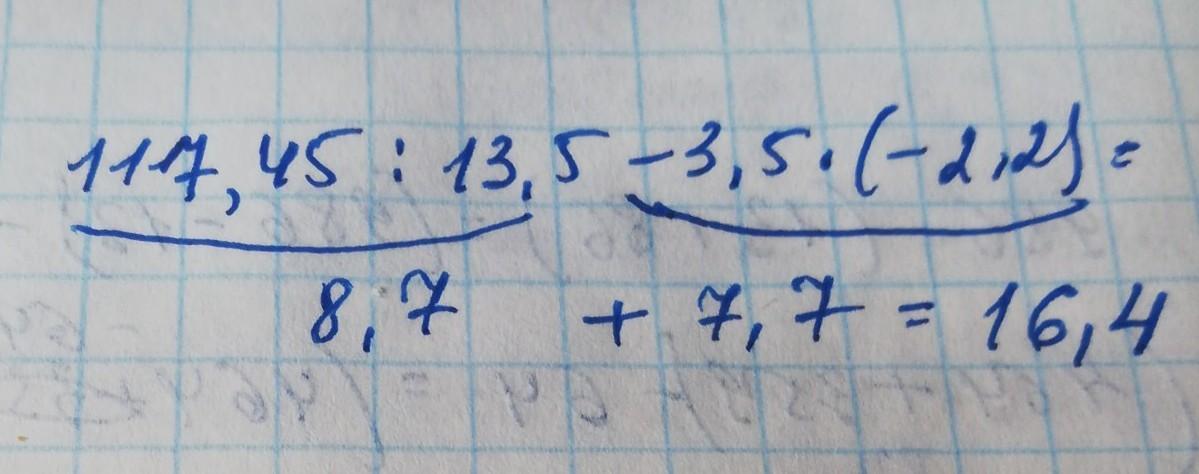 117,45 : 13,5 - 3,5 · (-2,2) =
8,7 + 7,7 = 16,4